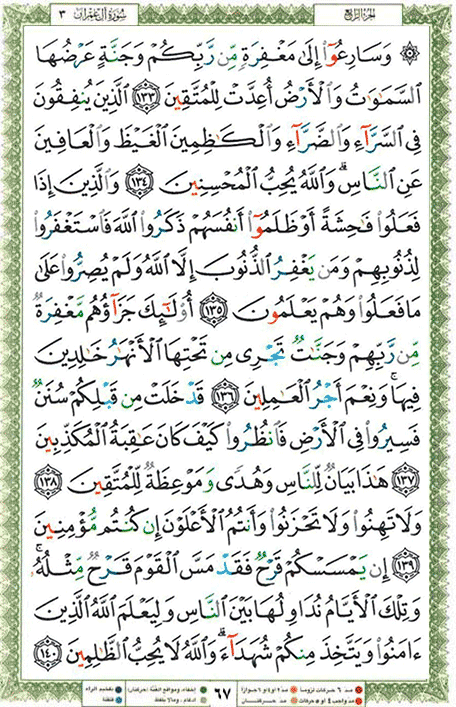 الجزء الرابع
سورة آل عمران ٣
۞ وَسَارِعُوٓا۟ إِلَىٰ مَغْفِرَةٍ مِّن رَّبِّكُمْ وَجَنَّةٍ عَرْضُهَا
ٱلسَّمَٰوَٰتُ وَٱلْأَرْضُ أُعِدَّتْ لِلْمُتَّقِينَ ١٣٣ ٱلَّذِينَ يُنفِقُونَ
فِى ٱلسَّرَّآءِ وَٱلضَّرَّآءِ وَٱلْكَٰظِمِينَ ٱلْغَيْظَ وَٱلْعَافِينَ
عَنِ ٱلنَّاسِ ۗ وَٱللَّهُ يُحِبُّ ٱلْمُحْسِنِينَ ١٣٤ وَٱلَّذِينَ إِذَا
فَعَلُوا۟ فَٰحِشَةً أَوْ ظَلَمُوٓا۟ أَنفُسَهُمْ ذَكَرُوا۟ ٱللَّهَ فَٱسْتَغْفَرُوا۟
لِذُنُوبِهِمْ وَمَن يَغْفِرُ ٱلذُّنُوبَ إِلَّا ٱللَّهُ وَلَمْ يُصِرُّوا۟ عَلَىٰ
مَا فَعَلُوا۟ وَهُمْ يَعْلَمُونَ ١٣٥ أُو۟لَٰٓئِكَ جَزَآؤُهُم مَّغْفِرَةٌ
مِّن رَّبِّهِمْ وَجَنَّٰتٌ تَجْرِى مِن تَحْتِهَا ٱلْأَنْهَٰرُ خَٰلِدِينَ
فِيهَا ۚ وَنِعْمَ أَجْرُ ٱلْعَٰمِلِينَ ١٣٦ قَدْ خَلَتْ مِن قَبْلِكُمْ سُنَنٌ
فَسِيرُوا۟ فِى ٱلْأَرْضِ فَٱنظُرُوا۟ كَيْفَ كَانَ عَٰقِبَةُ ٱلْمُكَذِّبِينَ
١٣٧ هَٰذَا بَيَانٌ لِّلنَّاسِ وَهُدًى وَمَوْعِظَةٌ لِّلْمُتَّقِينَ ١٣٨
وَلَا تَهِنُوا۟ وَلَا تَحْزَنُوا۟ وَأَنتُمُ ٱلْأَعْلَوْنَ إِن كُنتُم مُّؤْمِنِينَ
١٣٩ إِن يَمْسَسْكُمْ قَرْحٌ فَقَدْ مَسَّ ٱلْقَوْمَ قَرْحٌ مِّثْلُهُۥ ۚ
وَتِلْكَ ٱلْأَيَّامُ نُدَاوِلُهَا بَيْنَ ٱلنَّاسِ وَلِيَعْلَمَ ٱللَّهُ ٱلَّذِينَ
ءَامَنُوا۟ وَيَتَّخِذَ مِنكُمْ شُهَدَآءَ ۗ وَٱللَّهُ لَا يُحِبُّ ٱلظَّٰلِمِينَ ١٤٠
٦٧
مدّ ٦ حركات لزوماً
مدّ ٢ أو ٤ أو ٦ جوازاً
مدّ واجب ٤ أو ٥ حركات
مدّ حركتان
إخفاء، ومواقع الغنّة (حركتان)
إدغام، وما لا يلفظ
تفخيم الراء
قلقلة